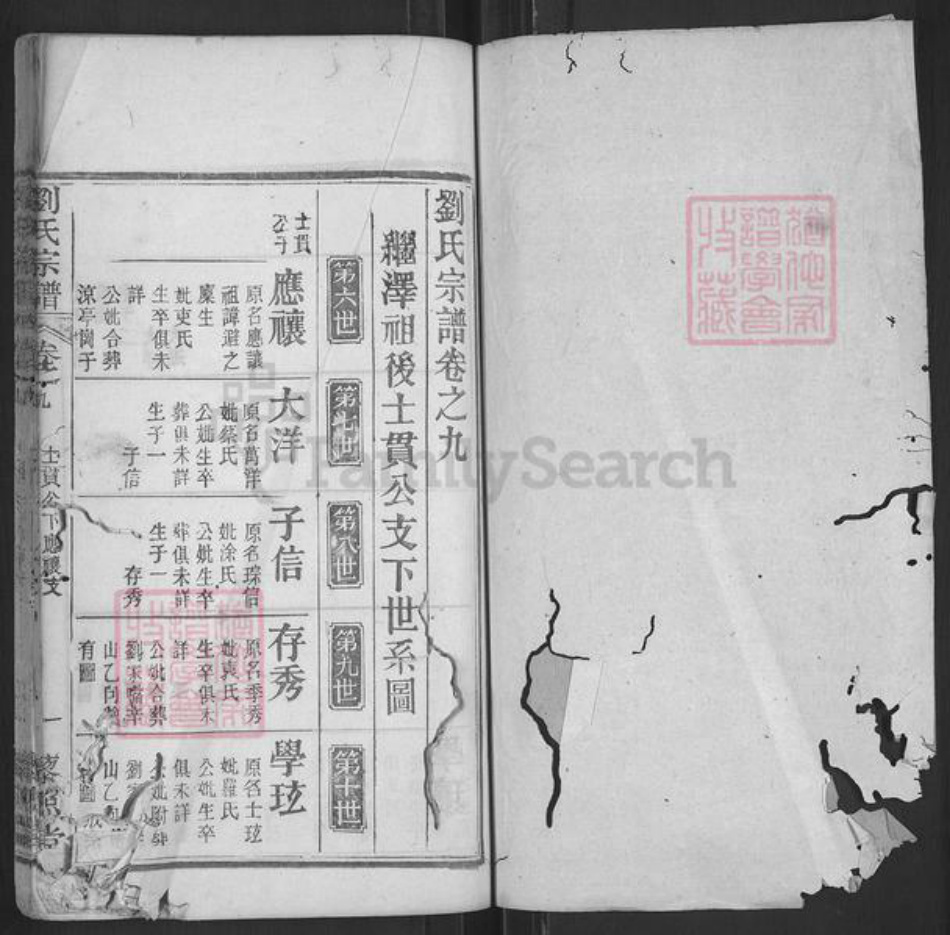 劉氏宗譜卷之九
繼澤祖後士貫公支下世系圖
第六世
第七世
第八世
第九世
第十世
士貫
公子
應禳
原名應讓
祖諱避之
廩生
妣吏氏
生卒俱未
詳
公妣合葬
涼亭崗于
大洋
原名萬洋
妣蔡氏
公妣生卒
葬俱未詳
生子一
子信
子信
原名琮信
妣涂氏
公妣生卒
葬俱未詳
生子一
存秀
存秀
原名季秀
妣袁氏
生卒俱未
詳
公妣合葬
山乙向
有圖
學玹
原名士玹
妣羅氏
公妣生卒
俱未詳
妣附葬
劉
山乙
圖
劉氏宗譜
卷九
士貫公下應禳支
一
FamilySearch
譜學會
收藏